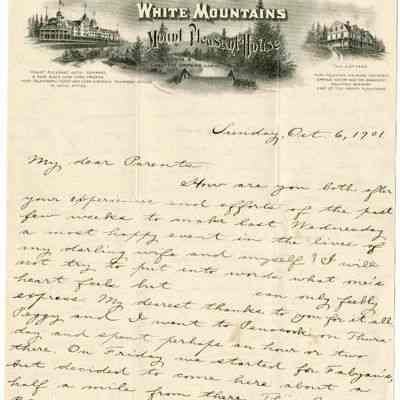 WHITE MOUNTAINS
Mount Pleasant House
THE COTTAGE
MOUNT PLEASANT HOTEL COMPANY
Sunday, Oct. 6, 1901
My dear Parents
How are you both after
your experience and efforts of the past
few weeks to make last Wednesday
a most happy event in the lives of
my darling wife and myself? I will
not try to put into words what one's
heart feels but can only feebly
express. My dearest thanks to you for it all.
Peggy and I went to Penacook on Thurs-
day and spent perhaps an hour or two
there. On Friday we started for Fabyan's,
but decided to come here about a
half a mile from there.